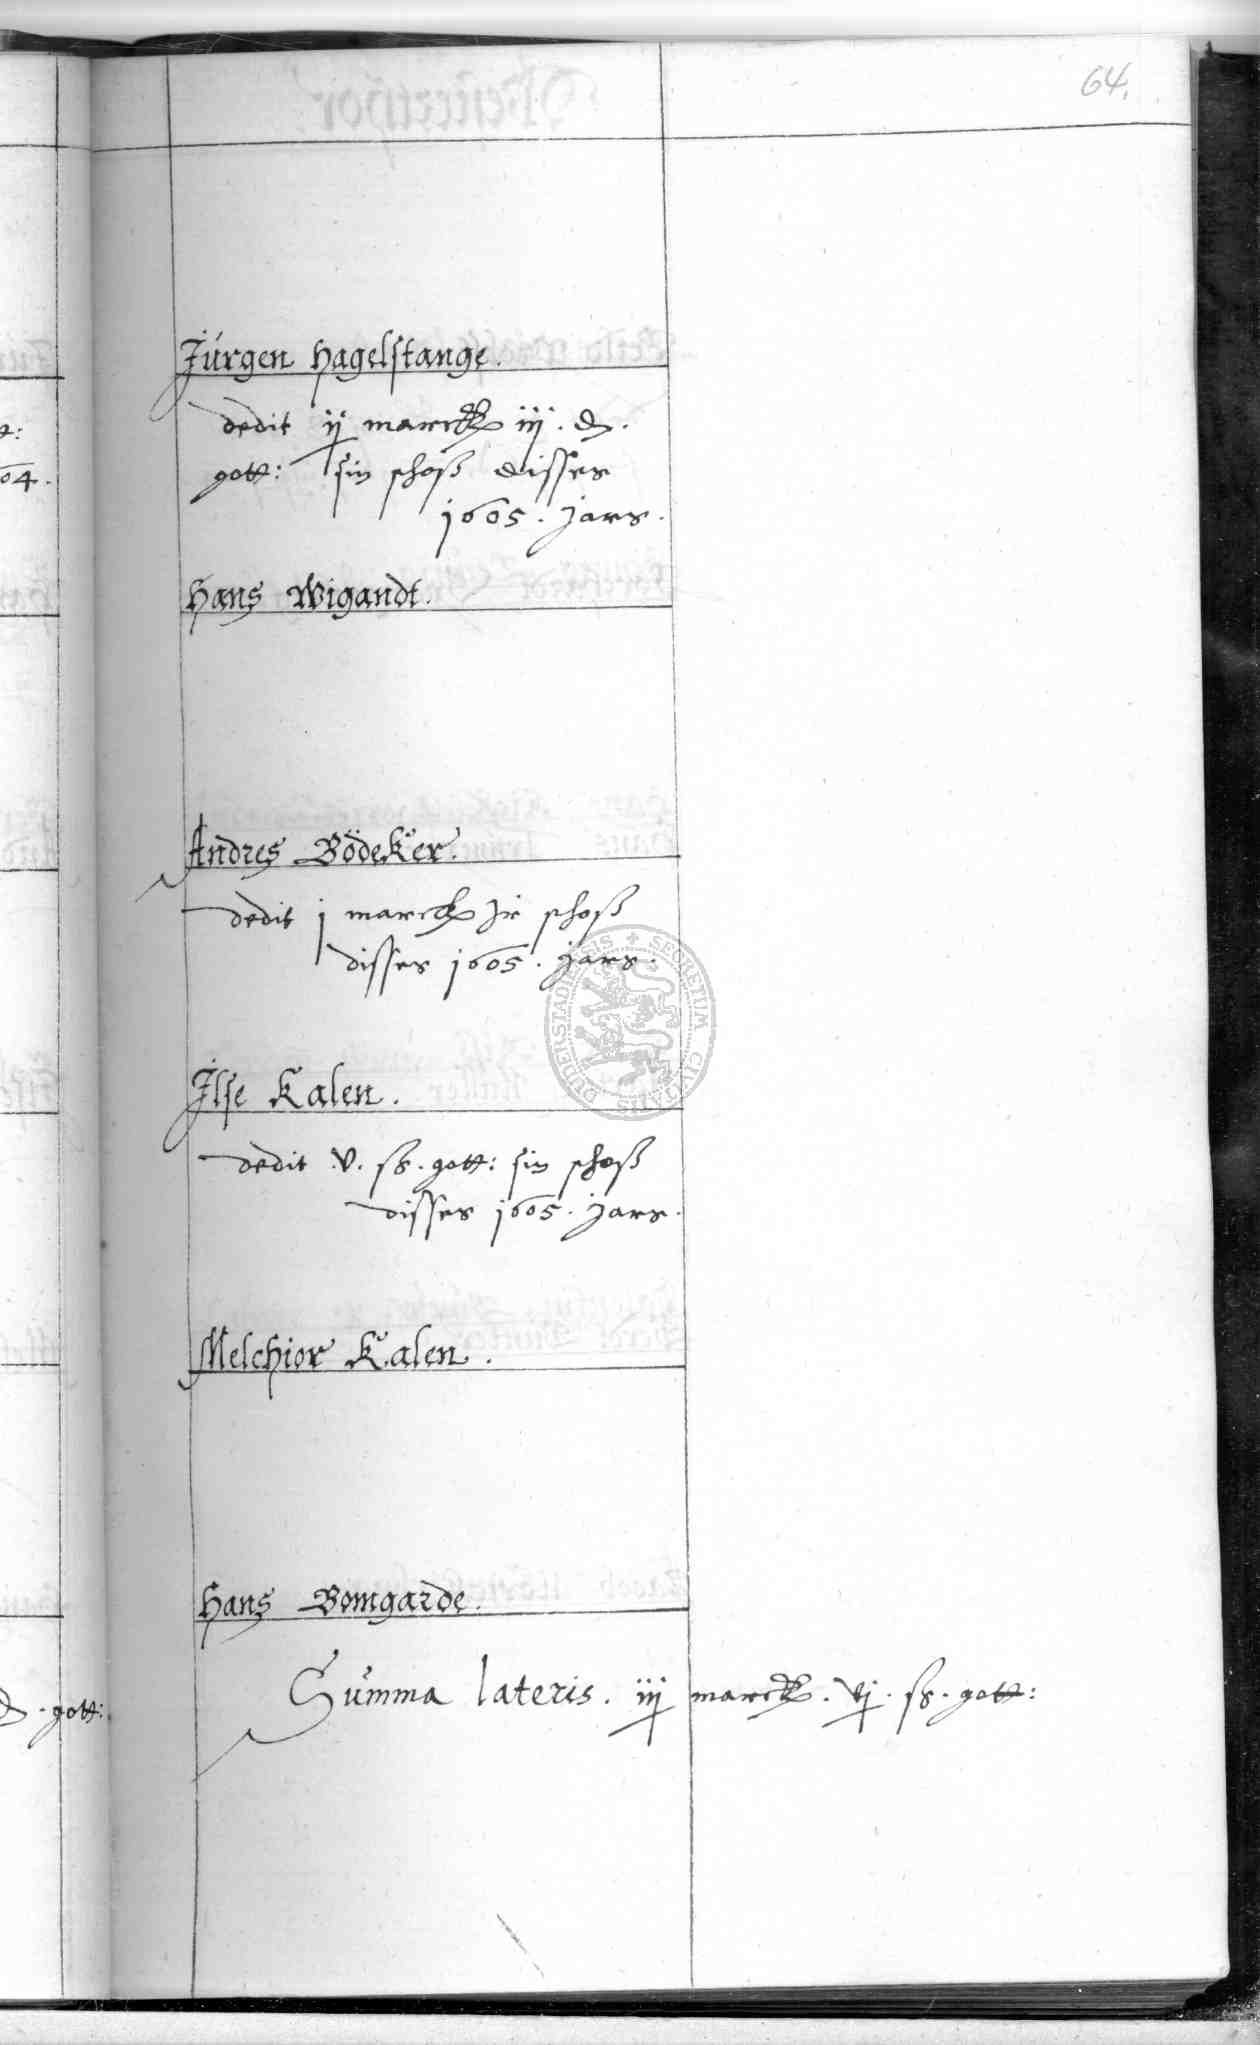 64.
Jürgen Hagelstange.
dedit ij marck iij. d.
gott: sin schoß disses
1605. jars.
Hans Wigandt.
Andres Bödeker.
dedit j marck jr schoß
disses 1605. jars.
Ilse Kalen.
dedit .v. ß. gott: sin schoß
disses 1605. jars.
Melchior Kalen.
Hans Bomgarde.
Summa lateris. iij marck. vj. ß. gott:
04.
gott:
SECRETUM CIVITATIS DUDERSTADIENSIS